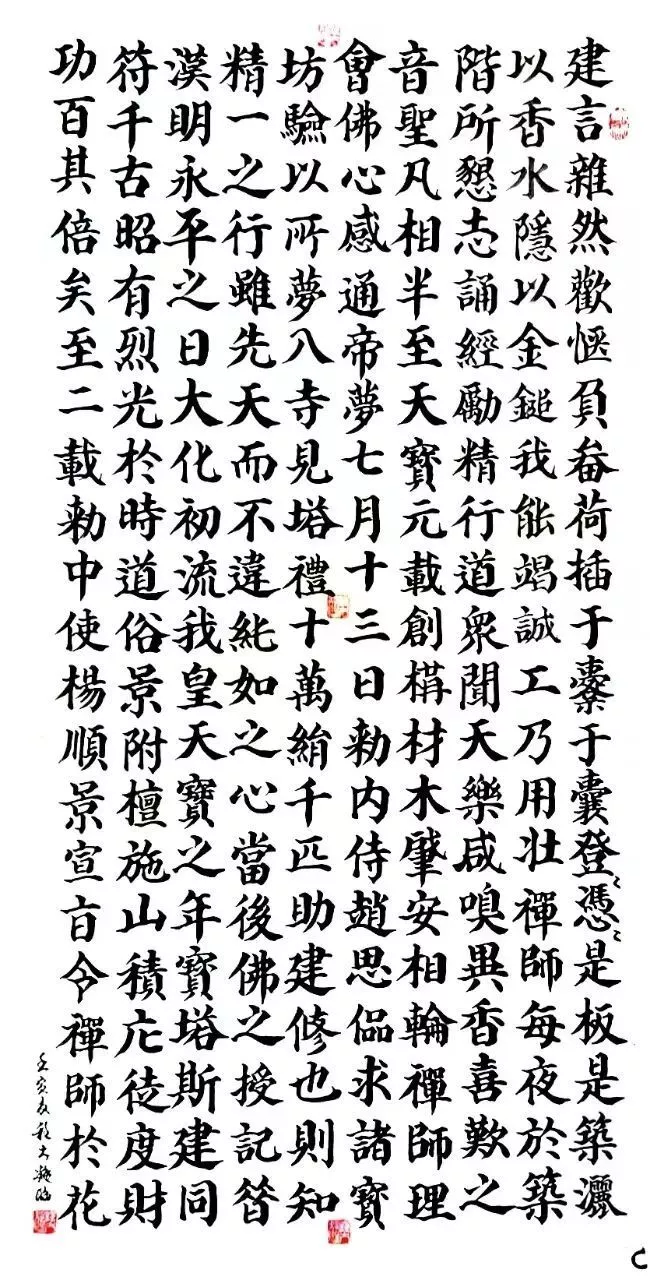 建言雜然歡愜負畚荷插于橐于囊登〻憑〻是板是築灑
以香水隱以金鎚我能竭誠工乃用壯禪師每夜於築
階所懇志誦經勵精行道衆聞天樂咸嗅異香喜歎之
音聖凡相半至天寶元載創構材木肇安相輪禪師理
會佛心感通帝夢七月十三日勑內侍趙思偘求諸寶
坊驗以所夢入寺見塔禮十萬絹千匹助建修也則知
精一之行雖先天而不違純如之心當後佛之授記昔
漢明永平之日大化初流我皇天寶之年寶塔斯建同
符千古昭有烈光於時道俗景附檀施山積庀徒度財
功百其倍矣至二載勑中使楊順景宣旨令禪師於花
壬寅